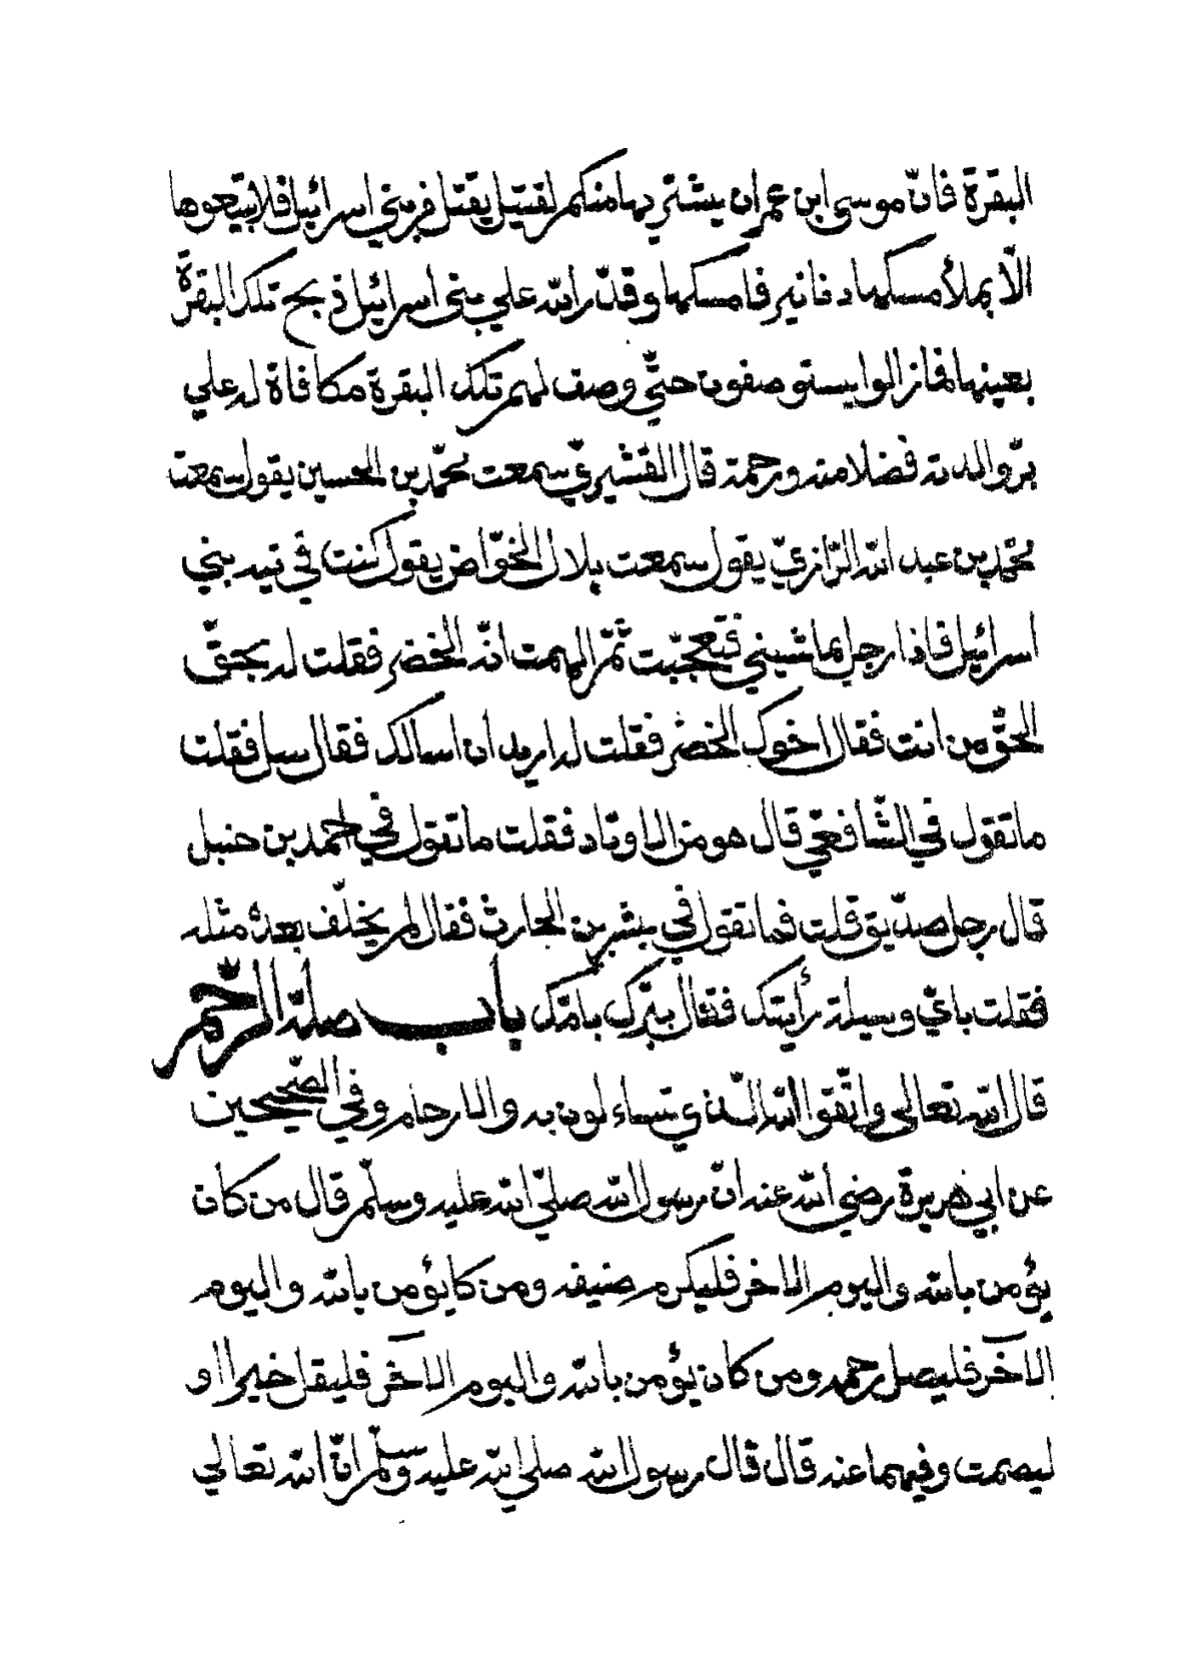 البقرة فانّ موسى ابن عمران يشتريها منكم لقتيل يقتل في بني اسرائيل فلا تبيعوها
الّا بملأ مسكها دنانير فامسكها وقدّر الله علي بني اسرائيل ذبح تلك البقرة
بعينها فما زالوا يستوصفون حتّي وصف لهم تلك البقرة مكافاة له علي
برّ والدته فضلا منه ورحمة قال القشيريّ سمعت محمّد بن الحسين يقول سمعت
محمّد بن عبد الله الرّازيّ يقول سمعت بلال الخوّاض يقول كنت في تيه بني
اسرائيل فاذا رجل يماشيني فتعجّبت ثمّ الهمت انّه الخضر فقلت له بحقّ
الحقّ من انت فقال اخوك الخضر فقلت له اريد ان اسالك فقال سل فقلت
ما تقول في الشّافعيّ قال هو من الاوتاد فقلت ما تقول في احمد بن حنبل
قال رجل صدّيق قلت فما تقول في بشر بن الحارث فقال لم يخلّف بعده مثله
فقلت بايّ وسيلة رأيتك فقال ببرّك بامّك باب صلة الرّحم
قال الله تعالى واتّقوا الله الّذي تساءلون به والارحام وفي الصّحيحين
عن ابي هريرة رضي الله عنه انّ رسول الله صلّي الله عليه وسلّم قال من كان
يؤمن بالله واليوم الاخر فليكرم ضيفه ومن كا يؤمن بالله واليوم
الآخر فليصل رحمه ومن كان يؤمن بالله واليوم الآخر فليقل خيرا او
ليصمت وفيهما عنه قال قال رسول الله صلي الله عليه وسلّم انّ الله تعالي